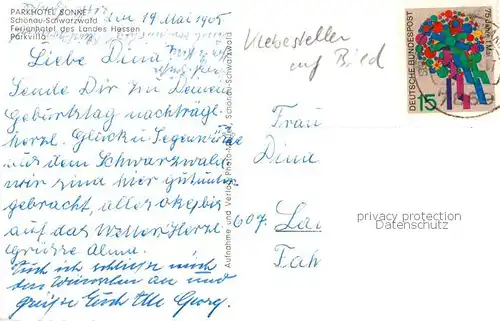 PARKHOTEL SONNE
Schönau-Schwarzwald
Ferienhotel des Landes Hessen
Parkvilla
den 19 Mai 1965
Liebe Dina
Sende Dir zu Deinem
Geburtstag nachträgl.
herzl. Glück u. Segenswünsche
aus dem Schwarzwald
wir sind hier gut unter
gebracht, alles okey bis
auf das Wetter Herzl.
Grüsse Alma.
Auch ich schließe mich
den Wünschen an und
grüße Euch Alle Georg.
Aufnahme und Verlag Photo- Schönau-Schwarzwald
Klebestellen
auf Bild
DEUTSCHE BUNDESPOST
15
75 JAHRE 1. MAI
Frau
Dina
607 Lan
privacy protection
Datenschutz